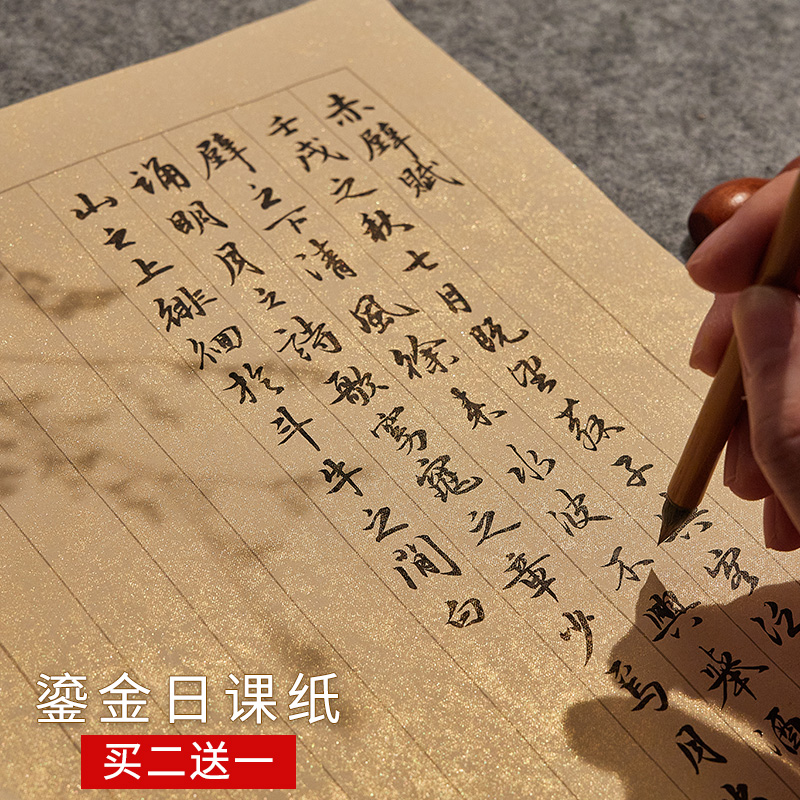 赤壁賦
壬戌之秋七月既望蘇子与客泛
壁之下清風徐来水波不興舉酒
誦明月之詩歌窈窕之章少焉月
山之上徘徊於斗牛之間白
鎏金日课纸
买二送一